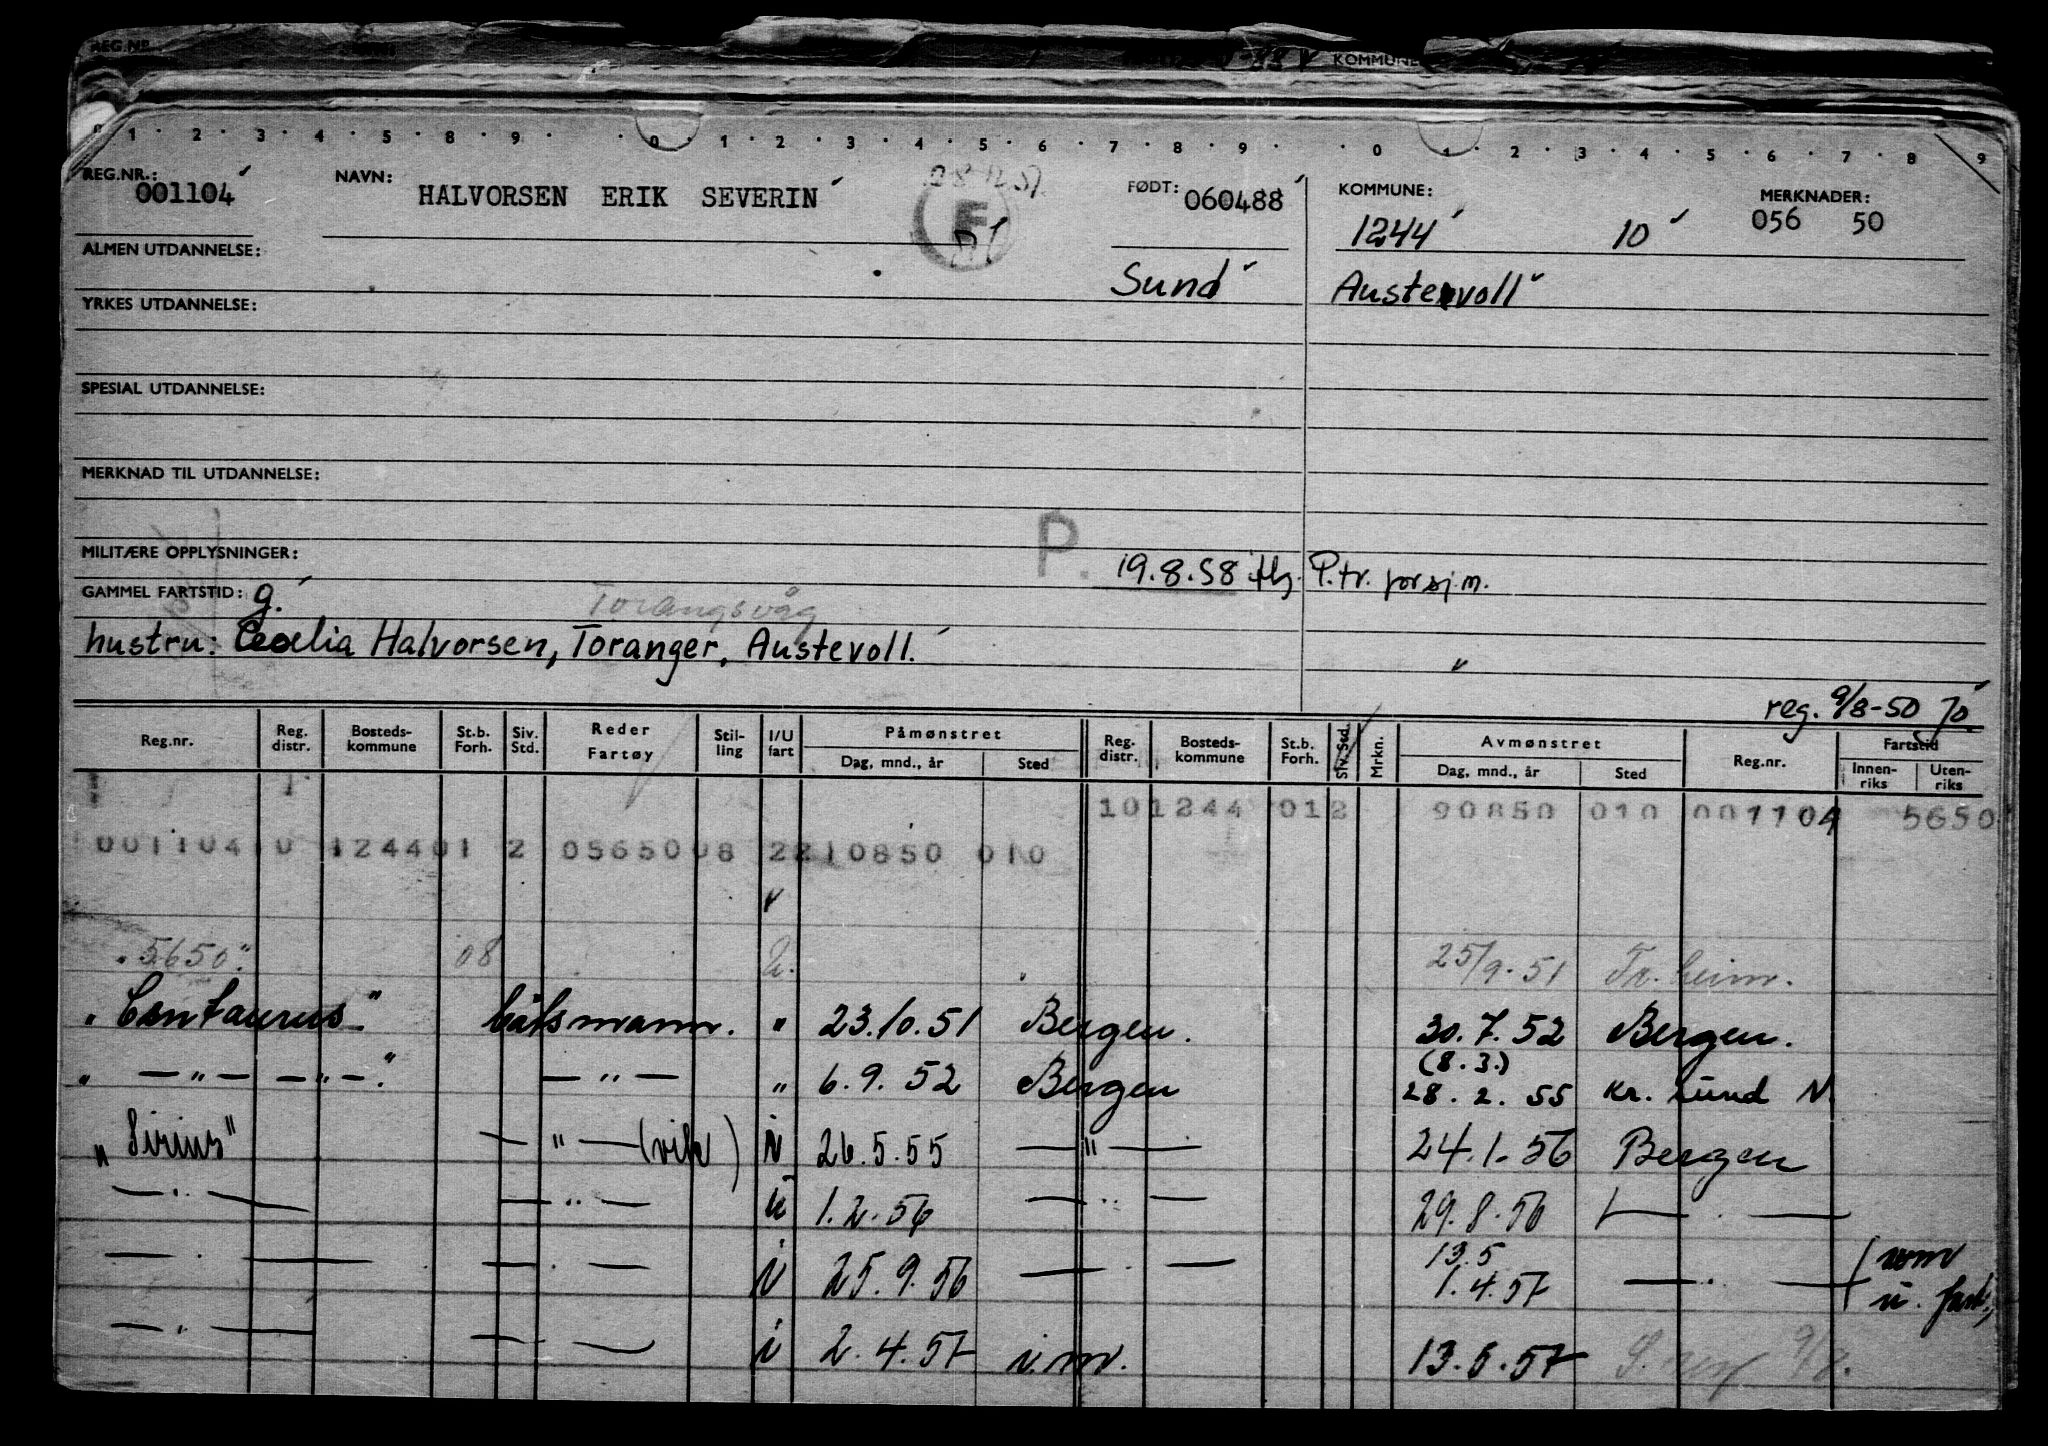 REG.NR. KOMMUNE
1 2 3 4 5 8 9 0 1 2 3 4 5 6 7 8 9 0 1 2 3 4 5 6 7 8 9
REG.NR.: 001104 NAVN: HALVORSEN ERIK SEVERIN FØDT: 060488 KOMMUNE: 1244 10 MERKNADER: 056 50
ALMEN UTDANNELSE: Sund Austevoll
YRKES UTDANNELSE:
SPESIAL UTDANNELSE:
MERKNAD TIL UTDANNELSE:
P.
MILITÆRE OPPLYSNINGER: 19.8.58 P.tr. for sj.m.
GAMMEL FARTSTID: g. Torangsvåg
hustru: Cecelia Halvorsen, Toranger, Austevoll.
reg. 9/8-50 Jo
Reg.nr. Reg. distr. Bosteds-kommune St.b. Forh. Siv. Std. Reder Fartøy Stil-ling I/U fart Påmønstret Dag, mnd., år Sted Reg. distr. Bosteds-kommune St.b. Forh. Siv. Std. Mrkn. Avmønstret Dag, mnd., år Sted Reg.nr. Fartstid Innen-riks Uten-riks
10 1244 01 2 90850 010 001104 5650
001104 0 1244 01 2 05650 08 2 210850 010
"5650" 08 U. 25/9-51 Tr.heim.
"Centaurus" båtsmann. " 23.10.51 Bergen. 30.7.52 Bergen.
(8.3.)
" — " — — " — " — " — " 6.9.52 Bergen 28.2.55 Kr.sund N.
"Sirius" — " — (vik) i 26.5.55 — " — 24.1.56 Bergen
— " — — " — u 1.2.56 — " — 29.8.56 — " —
13.5
— " — — " — i 25.9.56 — " — 1.4.57 — " — (som u. fart)
— " — — " — i 2.4.57 13.5.57